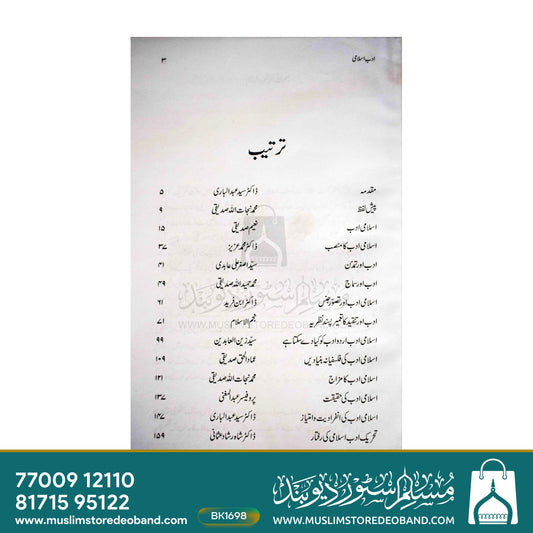 ادب اسلامی ۳
ترتیب
مقدمہ ڈاکٹر سید عبدالباری ۵
پیش لفظ محمد نجات اللہ صدیقی ۹
اسلامی ادب نعیم صدیقی ۱۵
اسلامی ادب کا منصب ڈاکٹر محمد عزیز ۳۷
ادب اور تمدن سید اصغر علی عابدی ۴۱
ادب اور سماج محمد حمید اللہ صدیقی ۴۹
اسلامی ادب اور تصور جنس ڈاکٹر ابن فرید ۶۱
ادب اور تنقید کا تعمیر پسند نظریہ نجم الاسلام ۷۱
اسلامی ادب اردو ادب کو کیا دے سکتا ہے سید زین العابدین ۹۹
اسلامی ادب کی فلسفیانہ بنیادیں عماد الحق صدیقی ۱۰۹
اسلامی ادب کا مزاج محمد نجات اللہ صدیقی ۱۲۱
اسلامی ادب کی حقیقت پروفیسر عبدالمغنی ۱۳۷
اسلامی ادب کی انفرادیت و امتیاز ڈاکٹر سید عبدالباری ۱۴۷
تحریک ادب اسلامی کی رفتار ڈاکٹر شاہ رشاد عثمانی ۱۵۹
مسلم سٹور دیوبند
WWW.MUSLIMSTOREDEOBAND.COM
77009 12110
81715 95122
www.muslimstoredeoband.com
BK1698
مسلم سٹور دیوبند
WWW.MUSLIMSTOREDEOBAND.COM